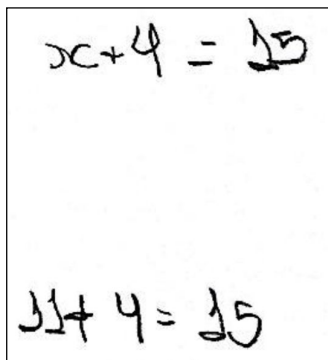 x + 4 = 15
11 + 4 = 15